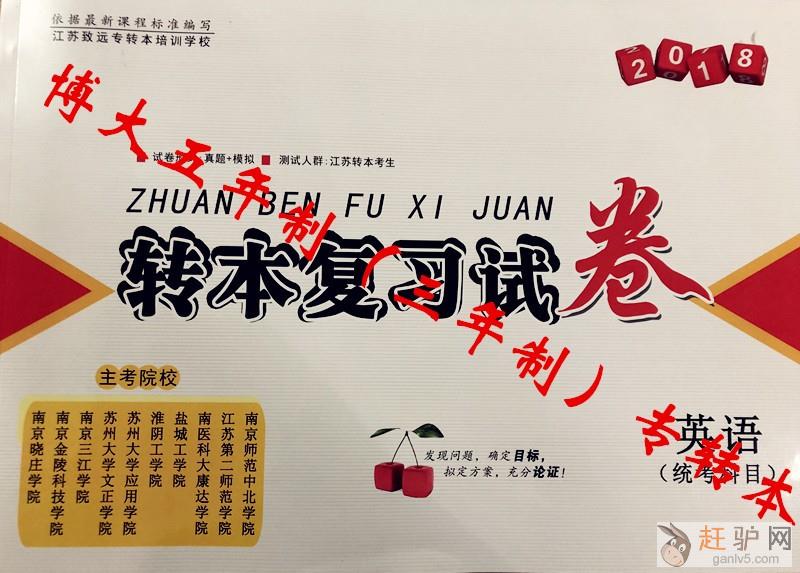 依据最新课程标准编写
江苏致远专转本培训学校
2018
试卷 真题+模拟 ■ 测试人群:江苏转本考生
ZHUAN BEN FU XI JUAN
转本复习试卷
博大五年制（三年制）专转本
主考院校
南京师范中北学院
江苏第二师范学院
南医科大康达学院
盐城工学院
淮阴工学院
苏州大学应用学院
苏州大学文正学院
南京三江学院
南京金陵科技学院
南京晓庄学院
发现问题，确定目标，
拟定方案，充分论证！
英语
（统考科目）
赶驴网
ganlv5.com